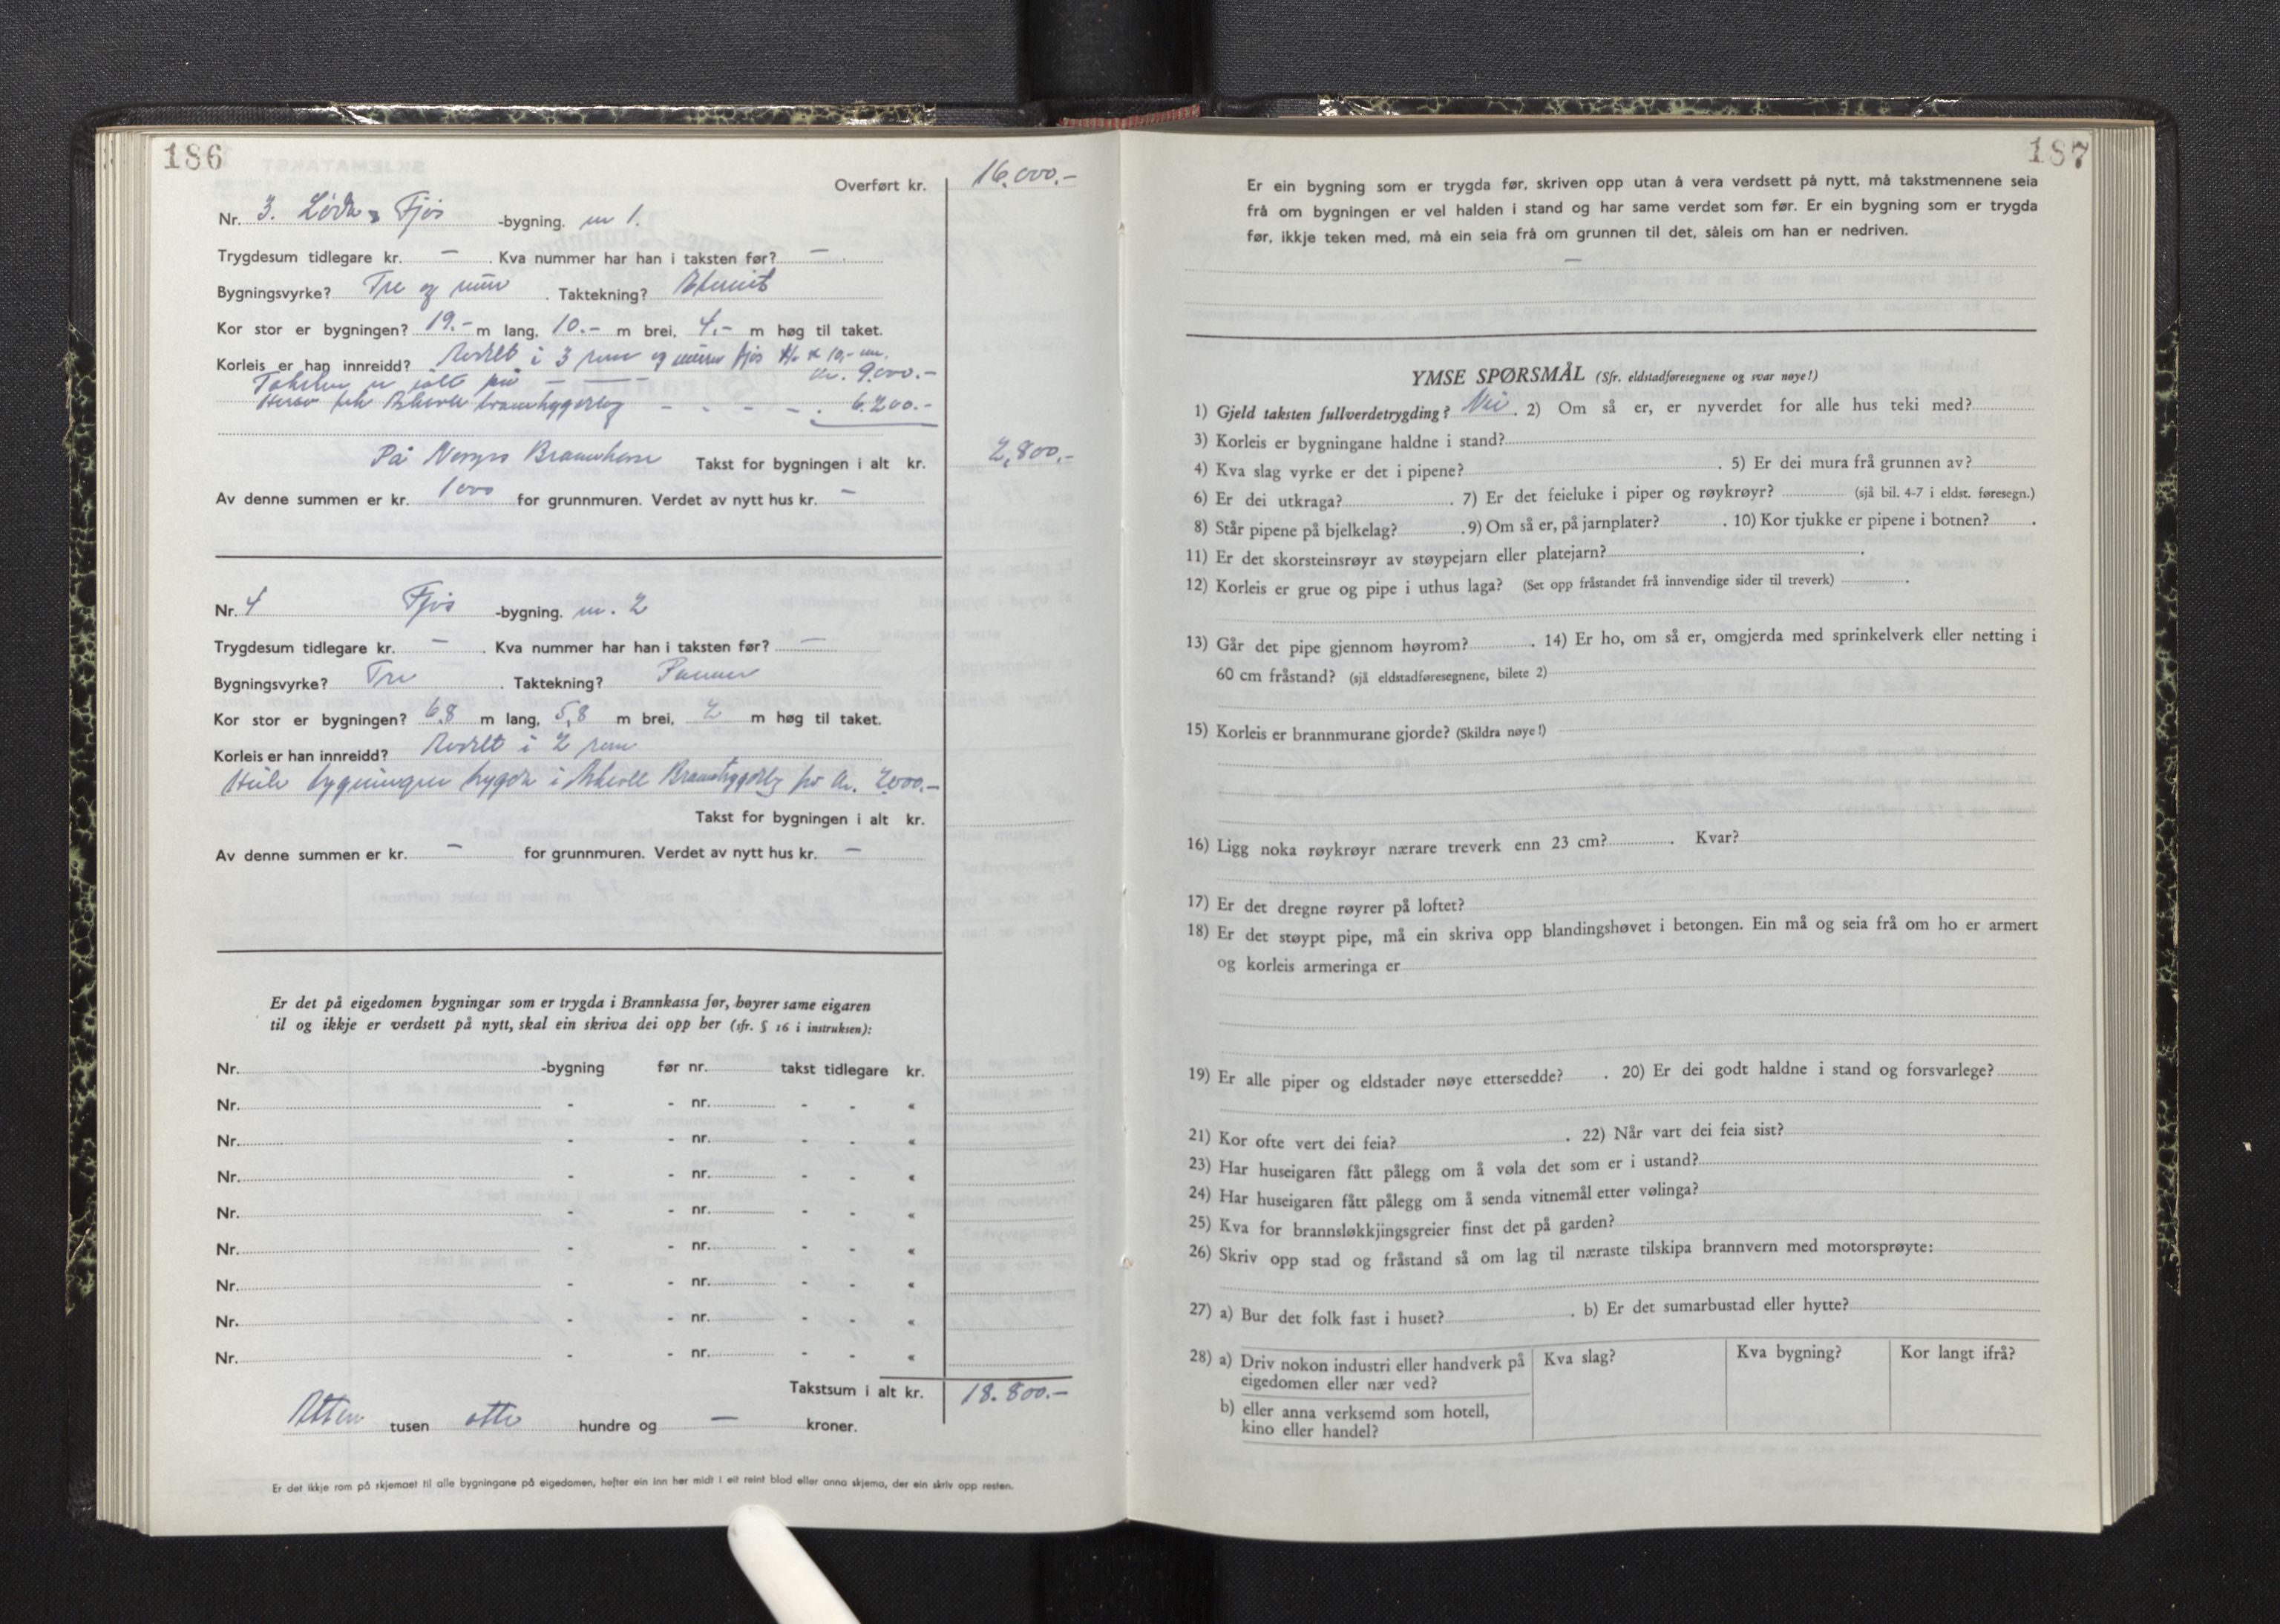 186
Overført kr. 16,000.-
Nr. 3. Løda & Fjøs -bygning. nr 1.
Trygdesum tidlegare kr. - . Kva nummer har han i taksten før? - .
Bygningsvyrke? Tre og mur . Taktekning? Eternit
Kor stor er bygningen? 19.- m lang, 10.- m brei, 4.- m høg til taket.
Korleis er han innreidd? i 3 rum og fjøs
Taksten er på - - - kr. 9.000.-
Brannhygdelag - - - - . 6.200.-
På Norges Brannkasse Takst for bygningen i alt kr. 2,800.-
Av denne summen er kr. 1000 for grunnmuren. Verdet av nytt hus kr. -
Nr. 4 Fjøs -bygning. nr. 2
Trygdesum tidlegare kr. - . Kva nummer har han i taksten før? -
Bygningsvyrke? Tre . Taktekning? Panner
Kor stor er bygningen? 6,8 m lang, 5,8 m brei, 2 m høg til taket.
Korleis er han innreidd? i 2 rum
Heile bygningen trygda i Branntrygdelag for kr. 2000.-
Takst for bygningen i alt kr.
Av denne summen er kr. - for grunnmuren. Verdet av nytt hus kr. -
Er det på eigedomen bygningar som er trygda i Brannkassa før, høyrer same eigaren
til og ikkje er verdsett på nytt, skal ein skriva dei opp her (sfr. § 16 i instruksen):
Nr. -bygning før nr. takst tidlegare kr.
Nr. - - nr. - - «
Nr. - - nr. - - «
Nr. - - nr. - - «
Nr. - - nr. - - «
Nr. - - nr. - - «
Nr. - - nr. - - «
Nr. - - nr. - - «
Nr. - - nr. - - «
Takstsum i alt kr. 18.800.-
Atten tusen otte hundre og - kroner.
Er det ikkje rom på skjemaet til alle bygningane på eigedomen, hefter ein inn her midt i eit reint blad eller anna skjema, der ein skriv opp resten.
187
Er ein bygning som er trygda før, skriven opp utan å vera verdsett på nytt, må takstmennene seia
frå om bygningen er vel halden i stand og har same verdet som før. Er ein bygning som er trygda
før, ikkje teken med, må ein seia frå om grunnen til det, såleis om han er nedriven.
-
YMSE SPØRSMÅL (Sfr. eldstadføresegnene og svar nøye!)
1) Gjeld taksten fullverdetrygding? Nei . 2) Om så er, er nyverdet for alle hus teki med?
3) Korleis er bygningane haldne i stand?
4) Kva slag vyrke er det i pipene? . 5) Er dei mura frå grunnen av?
6) Er dei utkraga? . 7) Er det feieluke i piper og røykrøyr? (sjå bil. 4-7 i eldst. føresegn.)
8) Står pipene på bjelkelag? . 9) Om så er, på jarnplater? . 10) Kor tjukke er pipene i botnen? .
11) Er det skorsteinsrøyr av støypejarn eller platejarn? .
12) Korleis er grue og pipe i uthus laga? (Set opp fråstandet frå innvendige sider til treverk) .
13) Går det pipe gjennom høyrom? . 14) Er ho, om så er, omgjerda med sprinkelverk eller netting i
60 cm fråstand? (sjå eldstadføresegnene, bilete 2)
15) Korleis er brannmurane gjorde? (Skildra nøye!)
16) Ligg noka røykrøyr nærare treverk enn 23 cm? . Kvar?
17) Er det dregne røyrer på loftet?
18) Er det støypt pipe, må ein skriva opp blandingshøvet i betongen. Ein må og seia frå om ho er armert
og korleis armeringa er
19) Er alle piper og eldstader nøye ettersedde? . 20) Er dei godt haldne i stand og forsvarlege?
21) Kor ofte vert dei feia? . 22) Når vart dei feia sist?
23) Har huseigaren fått pålegg om å vøla det som er i ustand?
24) Har huseigaren fått pålegg om å senda vitnemål etter vølinga?
25) Kva for brannsløkkjingsgreier finst det på garden?
26) Skriv opp stad og fråstand så om lag til næraste tilskipa brannvern med motorsprøyte:
27) a) Bur det folk fast i huset? . b) Er det sumarbustad eller hytte?
28) a) Driv nokon industri eller handverk på Kva slag? Kva bygning? Kor langt ifrå?
eigedomen eller nær ved?
b) eller anna verksemd som hotell,
kino eller handel?